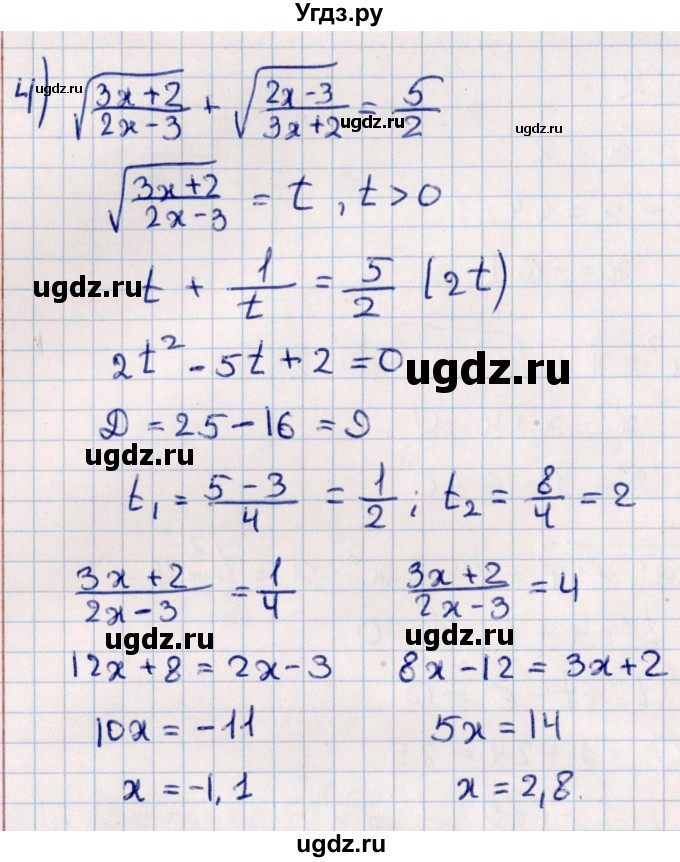 Угдз.ру
4) √((3x+2)/(2x-3)) + √((2x-3)/(3x+2)) = 5/2
ugdz.ru ugdz.ru ugdz.ru
√((3x+2)/(2x-3)) = t, t>0
t + 1/t = 5/2 (2t)
ugdz.ru
2t² - 5t + 2 = 0
ugdz.ru
D = 25 - 16 = 9
ugdz.ru
t₁ = (5-3)/4 = 1/2; t₂ = 8/4 = 2
(3x+2)/(2x-3) = 1/4 (3x+2)/(2x-3) = 4
ugdz.ru ugdz.ru
12x+8 = 2x-3 8x-12 = 3x+2
10x = -11 5x = 14
x = -1,1 x = 2,8.
ugdz.ru